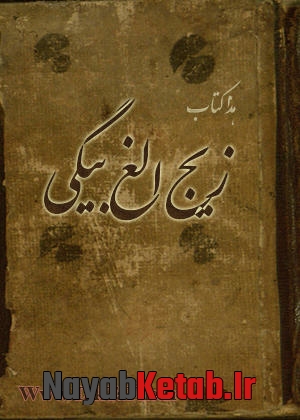 هذا کتاب
زیج الغ بیگی
NayabKetab.Ir